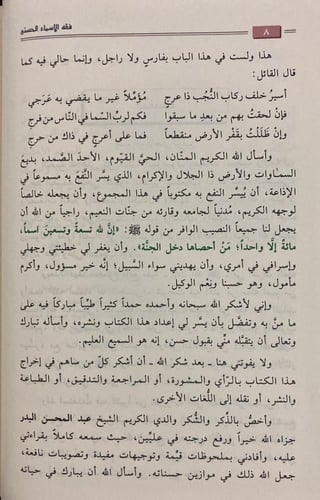 فقه الأسماء الحسنى
٨
هذا ولست في هذا الباب بفارس ولا راجل، وإنما حالي فيه كما
قال القائل:
أسيرُ خلف ركاب النُّجب ذا عرجٍ مؤمِّلاً غير ما يقضي به عَرَجي
فإن لحقتُ بهم من بعدِ ما سبقوا فكم لربِّ السَّما في النَّاس من فرجِ
وإن ظَلَلْتُ بقَفْر الأرض منقطعاً فما على أعرجٍ في ذاك من حرجِ
وأسأل الله الكريم المنَّان، الحيَّ القيّوم، الأحدَ الصَّمد، بديعَ
السماوات والأرض ذا الجلال والإكرام، الذي يسَّر النَّفع به مسموعاً في
الإذاعة، أن يُيسِّر النفع به مكتوباً في هذا المجموع، وأن يجعله خالصاً
لوجهه الكريم، مُدنياً لجامعه وقارئه من جنَّات النعيم، راجياً من الله أن
يجعل لنا جميعاً النصيب الوافر من قوله ﷺ: «إنَّ لله تسعةً وتسعينَ اسماً،
مائةً إلَّا واحداً؛ مَنْ أحصاها دخل الجنَّة». وأن يغفر لي خطيئتي وجهلي
وإسرافي في أمري، وأن يهديني سواء السَّبيل؛ إنه خير مسؤول، وأكرم
مأمول، وهو حسبنا ونِعْمَ الوكيل.
وإني لأشكر الله سبحانه وأحمده حمداً كثيراً طيِّباً مباركاً فيه على
ما منَّ به وتفضَّل بأن يسَّر لي إعداد هذا الكتاب ونشره، وأسأله تبارك
وتعالى أن يتقبَّله منِّي بقبول حسن، إنه هو السميع العليم.
ولا يفوتني هنا ـ بعد شكر الله ـ أن أشكر كلّ من ساهم في إخراج
هذا الكتاب بالرَّأي والمشورة، أو المراجعة والتدقيق، أو الطباعة
والنشر، أو نقله إلى اللُّغات الأخرى.
وأخصُّ بالذِّكر والشُّكر والدي الكريم الشيخ عبد المحسن البدر
جزاه الله خيراً ورفع درجته في علِّيين، حيث سمعه كاملاً بقراءتي
عليه، وأفادني بملحوظات قيِّمة وتوجيهات مفيدة وتصويبات نافعة،
جعل الله ذلك في موازين حسناته. وأسأل الله أن يبارك في حياته